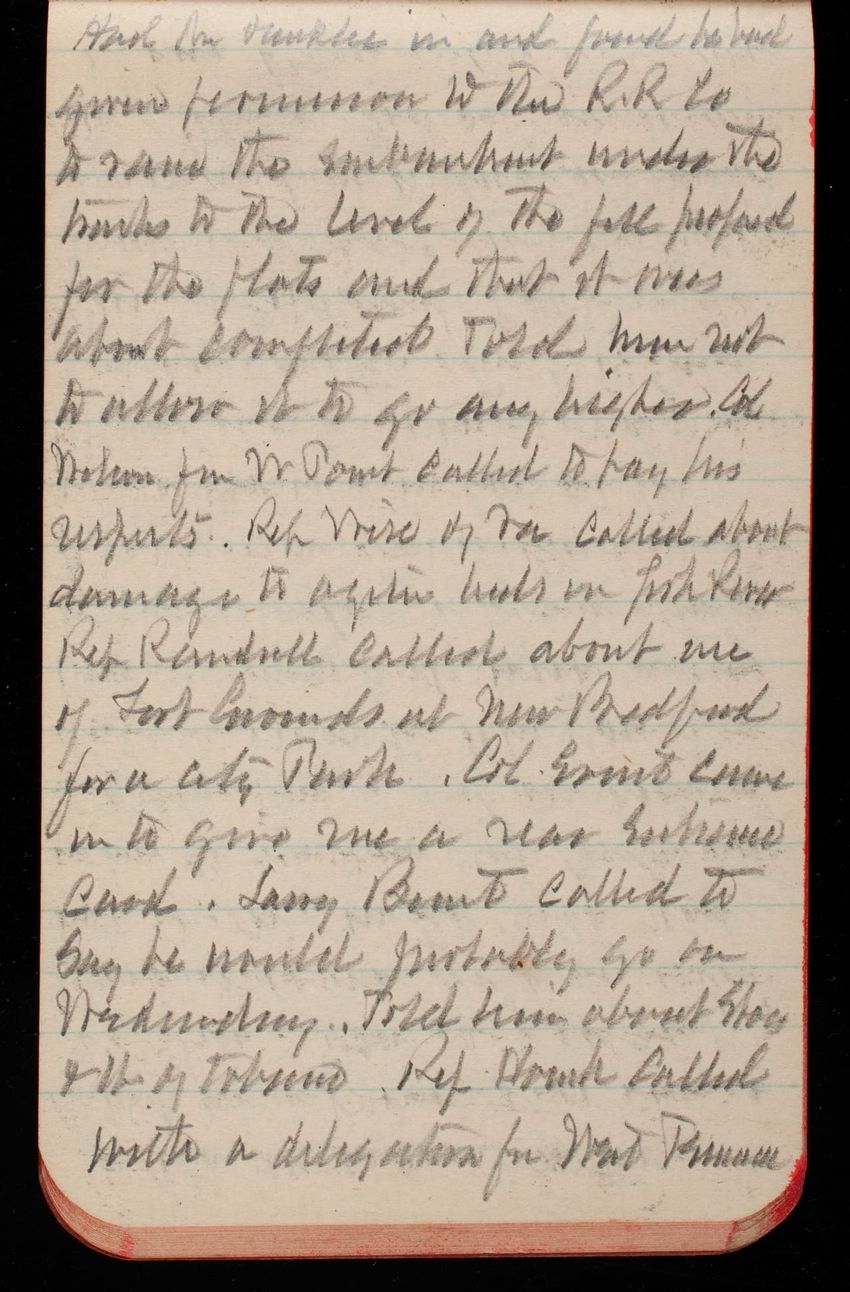 Had in and found he had
given permission to the R.R Co
to raise the embankment under the
tracks to the level of the fill proposed
for the flats and that it was
about completed. Told him not
to allow it to go any higher. Col
Wilson fm W Point called to pay his
respects. Rep Wise of Va called about
damage to oyster beds in York River
Rep Randall called about use
of Fort Grounds at New Bedford
for a city Park. Col. Ernst came
in to give me a rear Entrance
Card. Larry called to
Say he would probably go on
Wednesday. Told him about
& lb of tobacco. Rep Houk called
with a delegation fm West